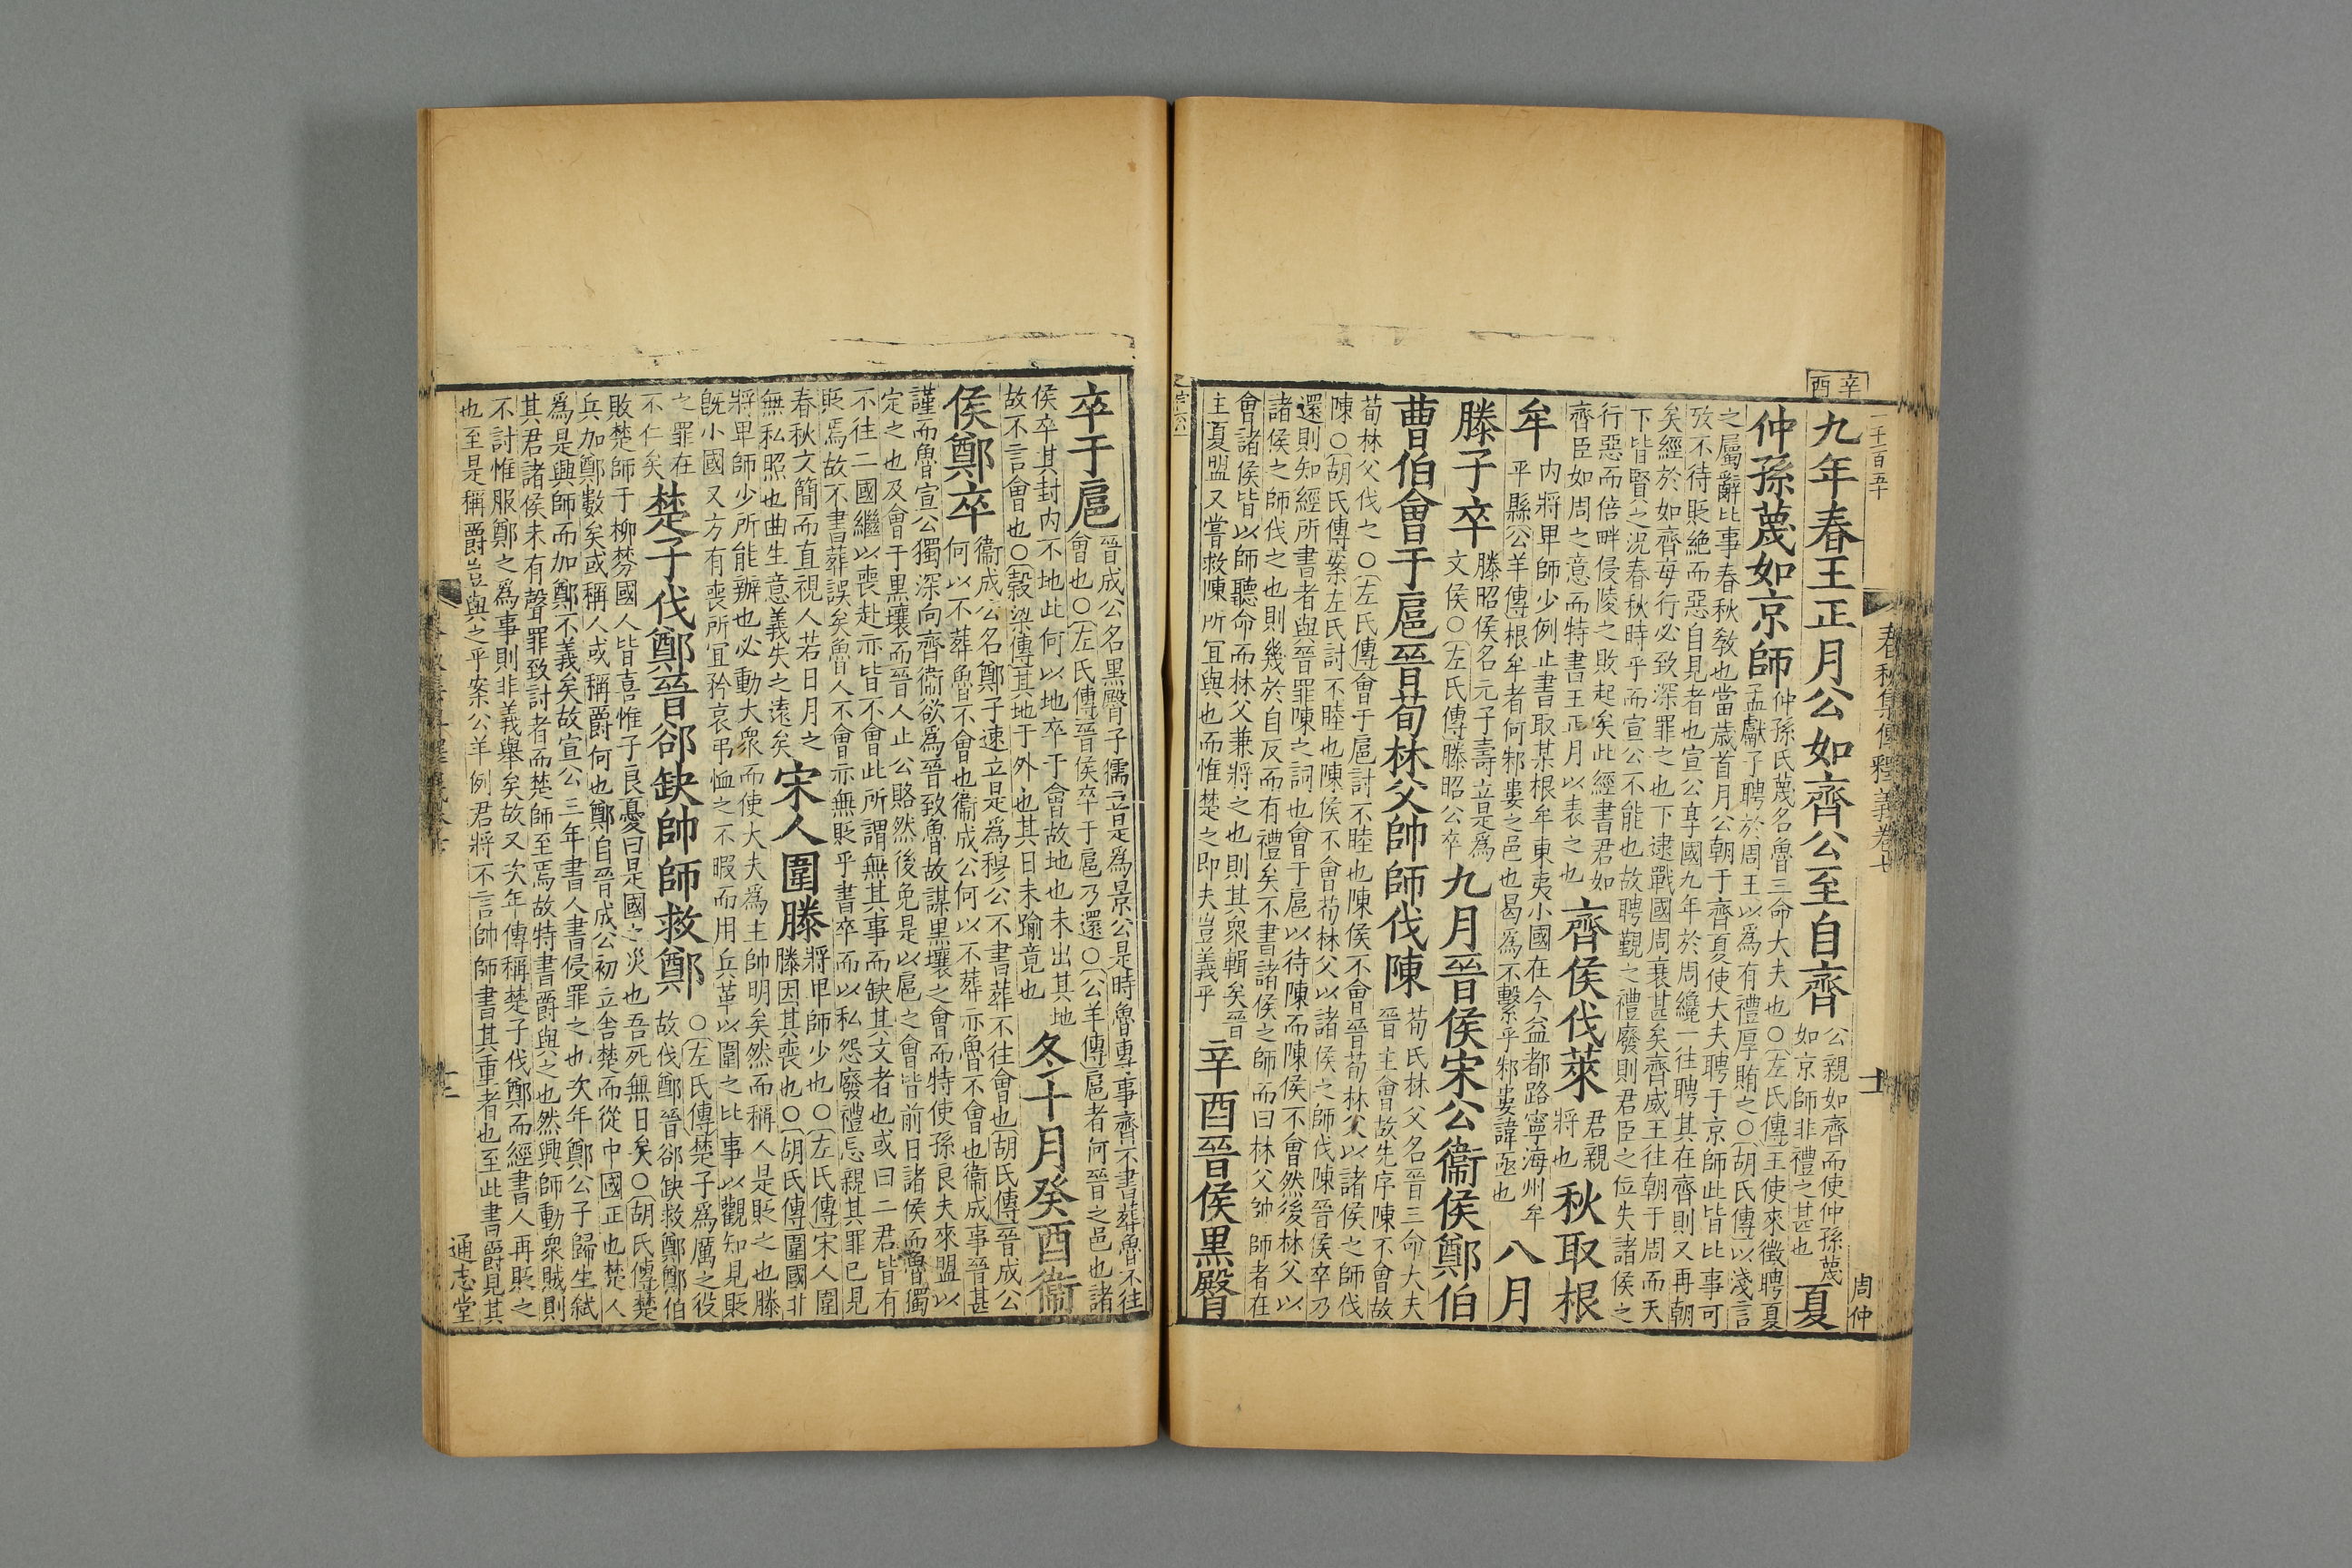 辛酉
一千一百五十
春秋集傳釋義卷七
十一
周仲
九年春王正月公如齊公至自齊公親如齊而使仲孫蔑如京師非禮之甚也夏
仲孫蔑如京師仲孫氏蔑名魯三命大夫也○左氏傳王使來徵聘夏孟獻子聘於周王以為有禮厚賄之○胡氏傳以淺言
之屬辭比事春秋敎也當歲首月公朝于齊夏使大夫聘于京師此皆比事可
攷不待貶絶而惡自見者也宣公享國九年於周纔一往聘其在齊則又再朝
矣經於如齊每行必致深罪之也下逮戰國周衰甚矣齊威王往朝于周而天
下皆賢之況春秋時乎而宣公不能也故聘覲之禮廢則君臣之位失諸侯之
行惡而倍畔侵陵之敗起矣此經書君如齊臣如周之意而特書王正月以表之也齊侯伐萊君親將也秋取根
牟內將卑師少例止書取某根牟東夷小國在今益都路寧海州牟平縣公羊傳根牟者何邾婁之邑也曷為不繫乎邾婁諱亟也八月
滕子卒滕昭侯名元子壽立是爲文侯○左氏傳滕昭公卒九月晉侯宋公衞侯鄭伯
曹伯會于扈晉荀林父帥師伐陳荀氏林父名晉三命大夫晉主會故先序陳不會故
荀林父伐之○左氏傳會于扈討不睦也陳侯不會晉荀林父以諸侯之師伐
陳○胡氏傳案左氏討不睦也陳侯不會荀林父以諸侯之師伐陳晉侯卒乃
還則知經所書者與晉罪陳之詞也會于扈以待陳而陳侯不會然後林父以
諸侯之師伐之也則幾於自反而有禮矣不書諸侯之師而曰林父帥師者在
會諸侯皆以師聽命而林父兼將之也則其衆輯矣晉主夏盟又嘗救陳所宜與也而惟楚之即夫豈義乎辛酉晉侯黑臀
卒于扈晉成公名黑臀子獳立是爲景公是時魯專事齊不書葬魯不往會也○左氏傳晉侯卒于扈乃還○公羊傳扈者何晉之邑也諸
侯卒其封內不地此何以地卒于會故地也未出其地故不言會也○穀梁傳其地于外也其日未踰竟也冬十月癸酉衞
侯鄭卒衞成公名鄭子速立是爲穆公不書葬不往會也胡氏傳晉成公何以不葬魯不會也衞成公何以不葬亦魯不會也衞成事晉甚
謹而魯宣公獨深向齊衞欲爲晉致魯故謀黑壤之會而特使孫良夫來盟以
定之也及會于黑壤而晉人止公賂然後免是以扈之會皆前日諸侯而魯獨
不往二國繼以喪赴亦皆不會此所謂無其事而缺其文者也或曰二君皆有
貶焉故不書葬誤矣魯人不會亦無貶乎書卒而以私怨廢禮忘親其罪已見
春秋文簡而直視人若日月之無私照也曲生意義失之遠矣宋人圍滕將卑師少也○左氏傳宋人圍滕因其喪也○胡氏傳圍國非
將卑師少所能辦也必動大衆而使大夫爲主帥明矣然而稱人是貶之也滕
旣小國又方有喪所宜矜哀弔恤之不暇而用兵革以圍之比事以觀知見貶
之罪在不仁矣楚子伐鄭晉郤缺帥師救鄭○左氏傳楚子爲厲之役故伐鄭晉郤缺救鄭鄭伯
敗楚師于柳棼國人皆喜惟子良憂曰是國之災也吾死無日矣○胡氏傳楚
兵加鄭數矣或稱人或稱爵何也鄭自晉成公初立舎楚而從中國正也楚人
爲是興師而加鄭不義矣故宣公三年書人書侵罪之也次年鄭公子歸生弑
其君諸侯未有聲罪致討者而楚師至焉故特書爵與之也然興師動衆賊則
不討惟服鄭之爲事則非義舉矣故又次年傳稱楚子伐鄭而經書人再貶之
也至是稱爵豈與之乎案公羊例君將不言帥師書其重者也至此書爵見其
十二
通志堂